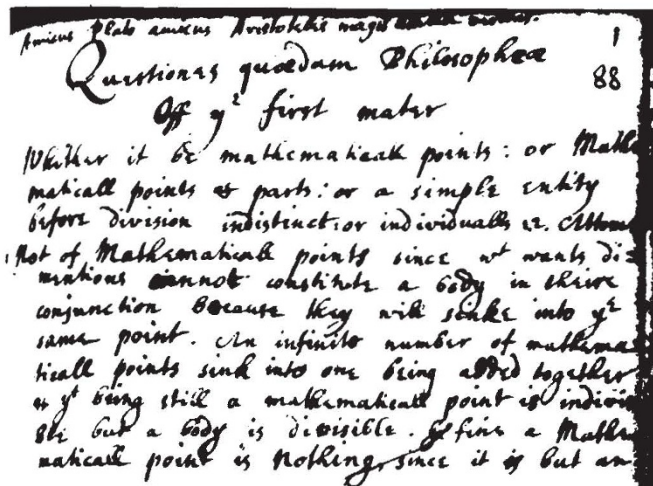 Amicus Plato amicus Aristoteles magis amica veritas.
1
Questiones quædam Philosophcæ
88
Off yᵉ first mater
Whither it be mathematicall points: or Mathe
maticall points & parts: or a simple entity
before division indistinct: or individualls i.e. Attoms
Not of Mathematicall points since wᵗ wants di=
mentions cannot constitute a body in theire
conjunction because they will sinke into yᵉ
same point. An infinite number of mathema
ticall points sink into one being added together
& yᵗ being still a mathematicall point is indivis
ble but a body is divisible. fine a Mathe
maticall point is Nothing, since it is but an